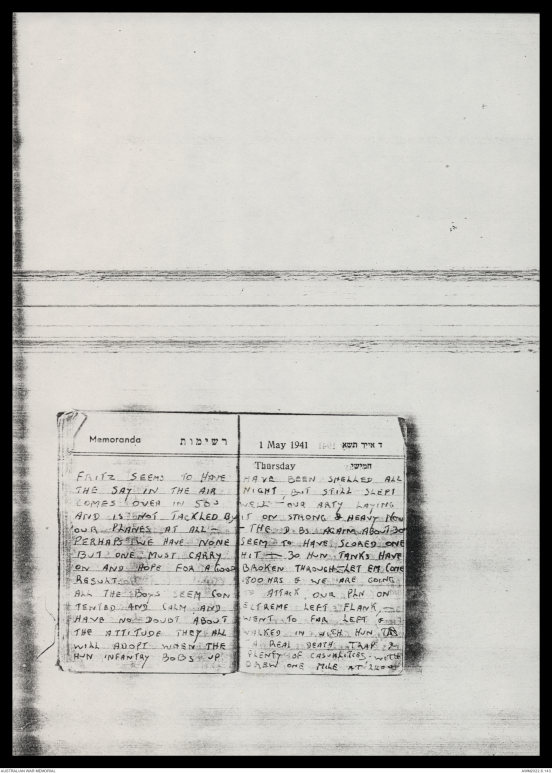 Memoranda רשימות
FRITZ SEEMS TO HAVE
THE SAY IN THE AIR
COMES OVER IN 50s
AND IS NOT TACKLED BY
OUR PLANES AT ALL —
PERHAPS WE HAVE NONE
BUT ONE MUST CARRY
ON AND HOPE FOR A GOOD
RESULT
ALL THE BOYS SEEM CON
TENTED AND CALM AND
HAVE NO DOUBT ABOUT
THE ATTITUDE THEY ALL
WILL ADOPT WHEN THE
HUN INFANTRY BOBS UP.
1 May 1941 ד אייר תשא
Thursday חמישי
HAVE BEEN SHELLED ALL
NIGHT BUT STILL SLEPT
WELL – OUR ARTY LAYING
IT ON STRONG & HEAVY NOW
– THE D. BS AGAIN ABOUT 30
SEEM TO HAVE SCORED ONE
HIT — 30 HUN TANKS HAVE
BROKEN THROUGH – LET EM COME
HRS & WE ARE GOING
TO ATTACK OUR PLN ON
EXTREME LEFT FLANK —
WENT TO FAR LEFT &
WALKED IN WITH HUN
A REAL DEATH TRAP &
PLENTY OF CASUALITIES. WITH
DREW ONE MILE AT
AUSTRALIAN WAR MEMORIAL